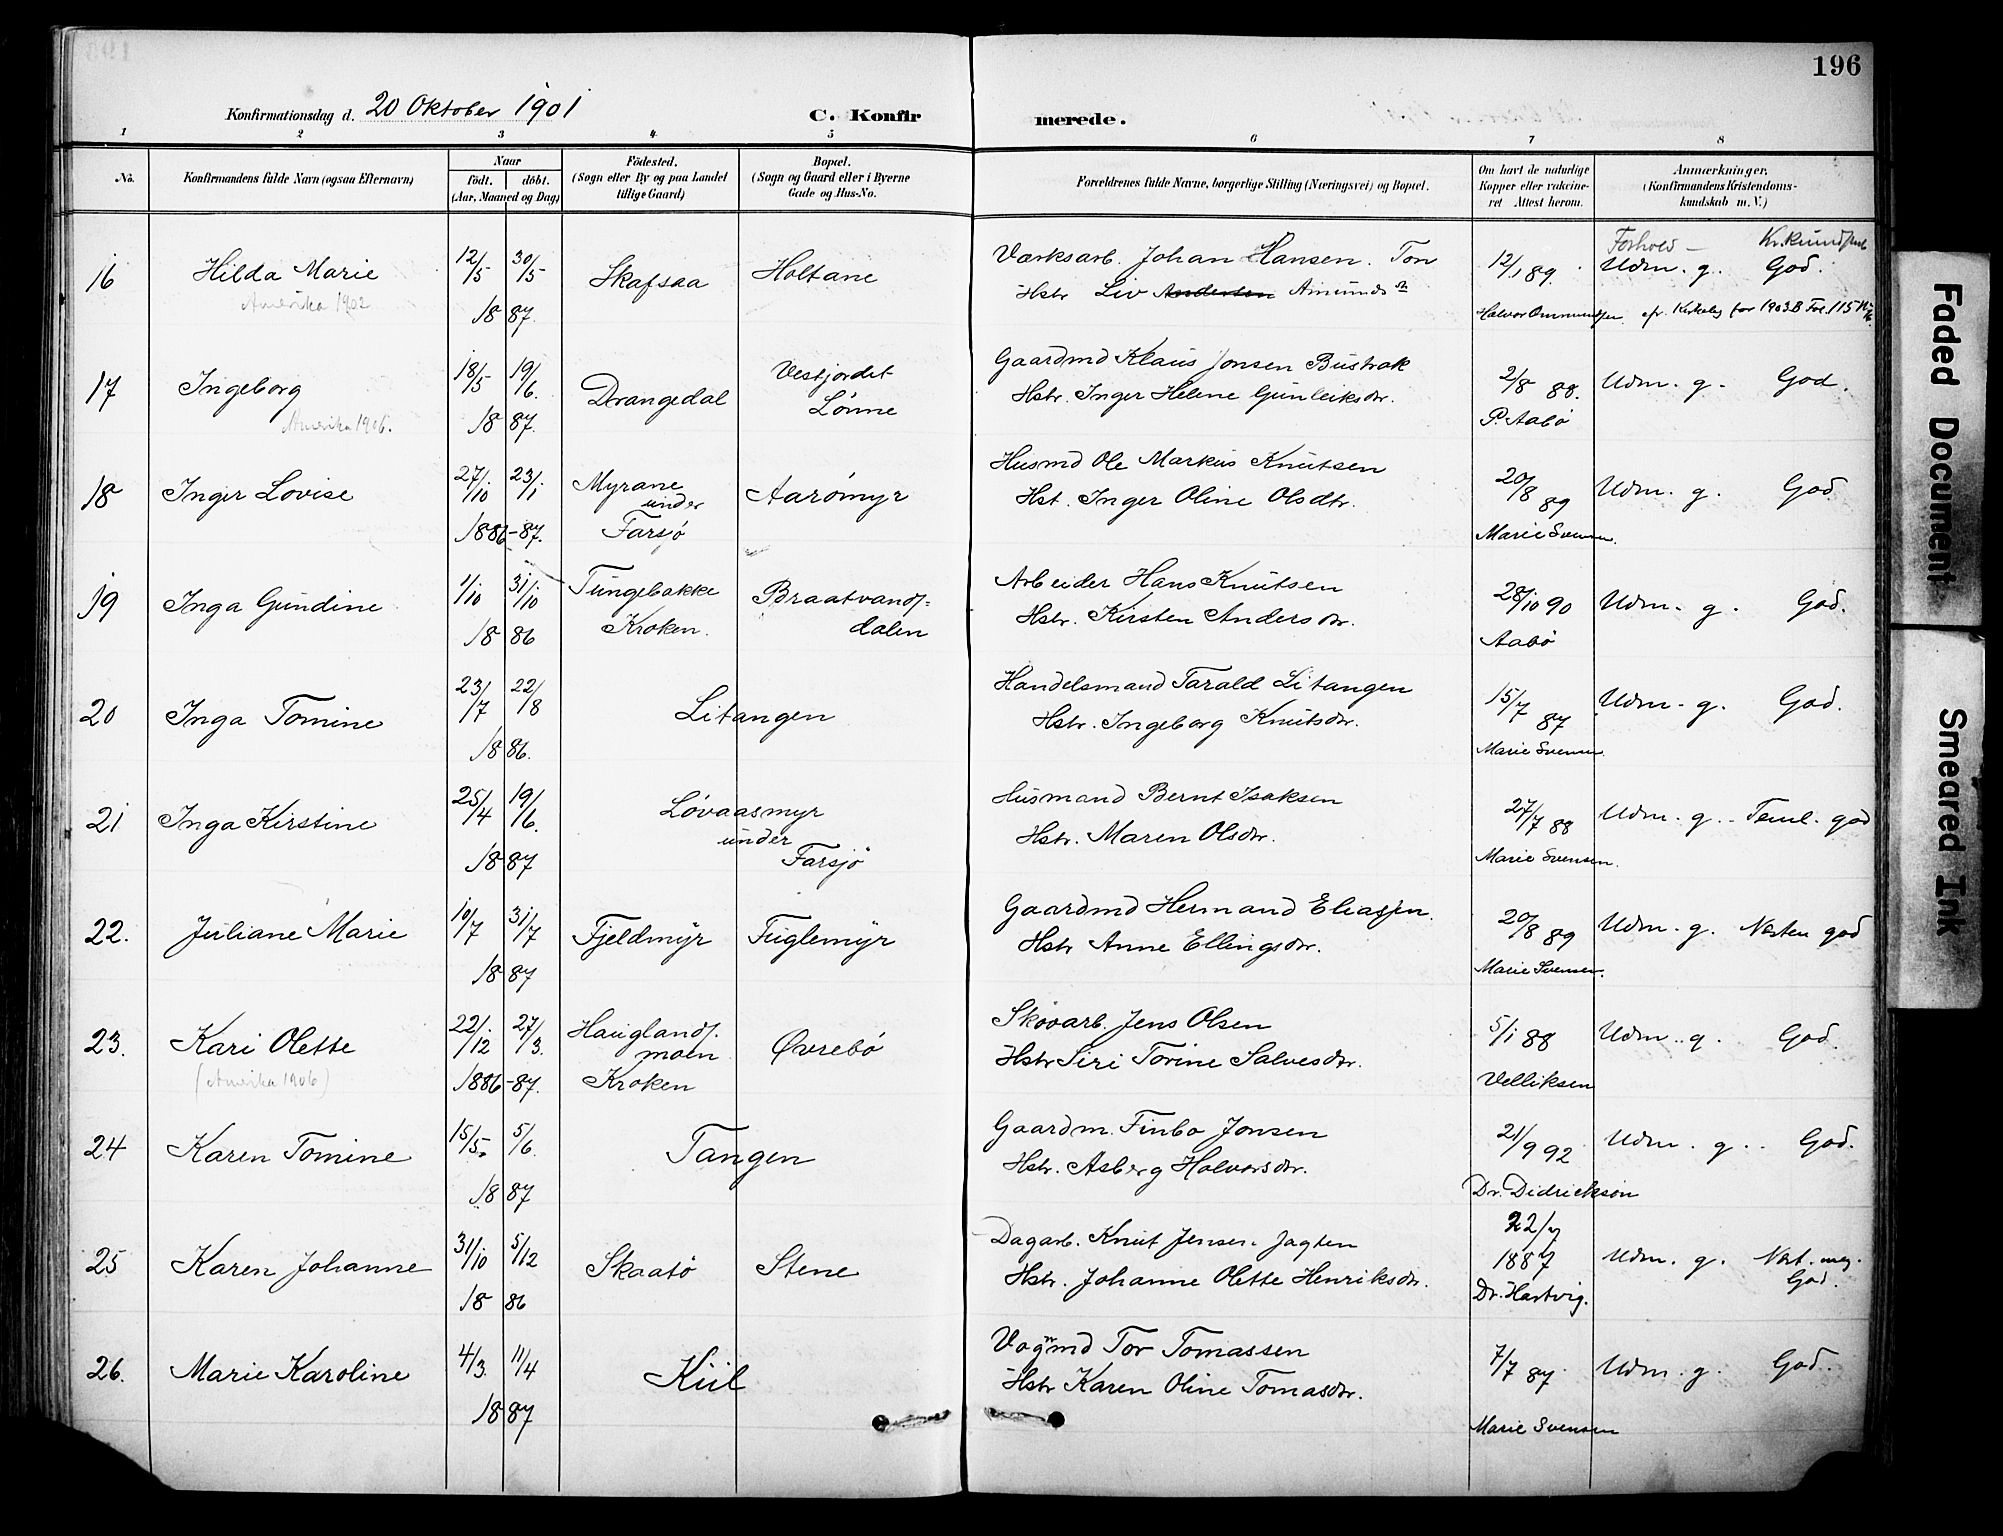 196
Konfirmationsdag d. 20 Oktober 1901
C. Konfirmerede.
1 2 3 4 5 6 7 8
No.
Konfirmandens fulde Navn (ogsaa Efternavn)
Naar
födt. döbt.
(Aar, Maaned og Dag)
Födested.
(Sogn eller By og paa Landet
tillige Gaard)
Bopæl.
(Sogn og Gaard eller i Byerne
Gade og Hus-No.
Forældrenes fulde Navne, borgerlige Stilling (Næringsvei) og Bopæl.
Om havt de naturlige
Kopper eller vakcine-
ret Attest herom.
Anmærkninger.
(Konfirmandens Kristendoms-
kundskab m. V.)
16 Hilda Marie 12/5 30/5 Skafsaa Holtane Værksarb. Johan Hansen. Ton 12/1 89. Forhold Udm. g. God.
Amerika 1902 18 87. Hstr Liv Andersen Amundsdr Halvor Ommundsen
17 Ingeborg 18/5 19/6. Drangedal Vestjordet Lönne Gaardmd Klaus Jonsen Bustrak 2/8 88. Udm. g. God.
Amerika 1906. 18 87. Hstr. Inger Helene Gunleiksdr. P. Aabö
18 Inger Lovise 27/10 23/1 Myrane under Aarömyr Husmd Ole Markus Knutsen 20/8 89 Udm. g. God
1886-87. Farsjö Hst. Inger Oline Olsdtr. Marie Svensen.
19 Inga Gundine 1/10 31/10 Tungebakke Braatvands- Arbeider Hans Knutsen 28/10 90 Udm. g. God.
18 86 Kroken. dalen Hstr. Kirsten Andersdr. Aabö
20 Inga Tomine 23/7 22/8 Litangen Handelsmand Tarald Litangen 15/7 87 Udm. g. God.
18 86. Hstr. Ingeborg Knutsdr. Marie Svensen
21 Inga Kirstine 25/4 19/6. Løvaasmyr under Husmand Bernt Isaksen 27/7 88 Udm. g. Teml. god
18 87 Farsjö Hstr. Maren Olsdr. Marie Svensen.
22. Juliane Marie 10/7 31/7 Fjeldmyr Fuglemyr Gaardmd Hermand Eliassen. 20/8 89 Udm. g. Næsten god
18 87 Hstr Anne Ellingsdr. Marie Svensen.
23. Kari Olette 22/12 27/3. Hauglands- moen Øvrebö Skovarb. Jens Olsen 5/1 88 Udm. g. God.
(Amerika 1906) 1886-87. Kroken Hstr Siri Torine Salvesdr. Velliksen
24 Karen Tomine 15/5. 5/6. Tangen Gaardm. Finbo Jonsen 21/9 92 Udm. g. God.
18 87 Hstr. Asberg Halvorsdr. Dr. Didrickson
25 Karen Johanne 31/10 5/12 Skaatö Stene Dagarb. Knut Jensen Jagten 22/7 1887 Udm. g. Næst. meg. God.
18 86 Hstr. Johanne Olette Henriksdr. Dr. Hartvig.
26. Marie Karoline 4/3. 11/4 Kiil Vognmd Tor Tomassen 7/7 87. Udm. g. God.
18 87 Hstr Karen Oline Tomasdr. Marie Svensen
Faded Document
Smeared Ink